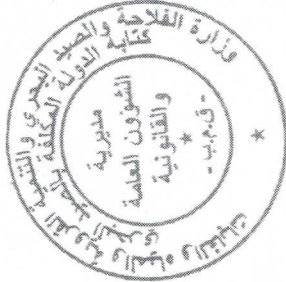 وزارة الفلاحة والصيد البحري والتنمية القروية والمياه والغابات
كتابة الدولة المكلفة بالصيد البحري
مديرية
الشؤون العامة
والقانونية
*
-ق.م.ب-
*